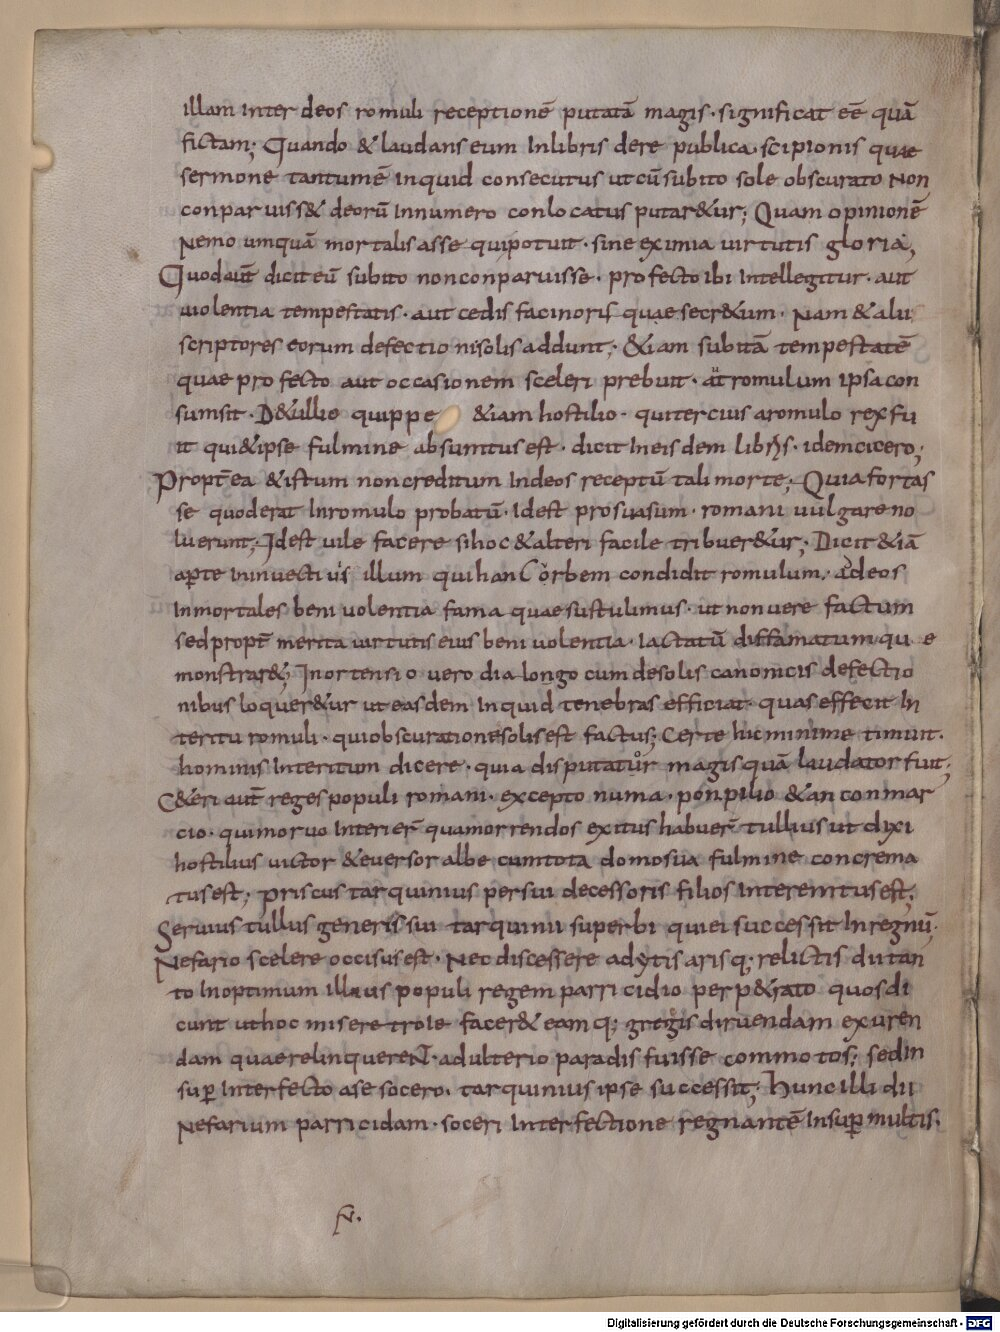 illam inter deos romuli receptionē putatā magis· significat eē quā
fictam; Quando & laudans eum Inlibris dere publica· scipionis quae
sermone tantumē inquid consecutus ut cū subito sole obscurato Non
conparuiss& deorū Innumero conlocatus putar&ur; Quam opinionē
Nemo umquā mortalis asse quipotuit· sine eximia uirtutis gloria;
Quod aut̄ dicit eū subito nonconparuisse· profecto ibi Intellegitur· aut
uiolentia tempestatis· aut cedis facinoris quae secr&um· Nam & alii
scriptores eorum defectioni solis addunt; &iam subitā tempestatē
quae profecto aut occasionem sceleri prebuit· at romulum ipsa con
sumsit· D&ullio quippe &iam hostilio· qui tercius aromulo rex fu
it qui&ipse fulmine absumtus est· dicit Ineisdem libris· idem cicero;
Propt̄ea &istum non creditum Indeos receptū tali morte; Quia fortas
se quod erat Inromulo probatū· Idest prosuasum· romani uulgare no
luerunt; Idest uile facere si hoc & alteri facile tribuer&ur; Dicit &iā
aperte Ininuectiuis illum qui hanc orbem condidit romulum· ad eos
Inmortales beniuolentia fama quae sustulimus· ut non uere factum
sed propt̄ merita uirtutis eius beniuolentia· Iactatū diffamatumqu e
monstrar&; Inortensio uero dialongo cum de solis canonicis defectio
nibus loquer&ur ut easdem Inquid tenebras efficiat· quas effecit In
teritu romuli· qui obscuratione solis est factus; Certe hic minime timuit·
hominis Interitum dicere· quia disputator magis quā laudator fuit;
C&eri aut̄ reges populi romani· excepto numa· ponpilio & anconmar
cio· qui moruo Interier̄ quam orrendos exitus habuer̄ tullius ut dixi
hostilius uictor & euersor albe cumtota domo sua fulmine concrema
tus est; priscus tarquinius per sui decessoris filios Interemtus est;
Seruius tullus generis sui tarquinii superbi qui ei successit In regnū·
Nefario scelere occisus est· Nec discessere adytis arisq; relictis dii tan
to In optimum illius populi regem parricidio perp&rato quos di
cunt ut hoc misere troie facer& eamq; gregis diruendam exuren
dam quae relinquereNT· adulterio paradis fuisse commotos; sed In
sup̄ Interfecto a se socero· tarquinius ipse successit; Hunc illi dii
Nefarium parricidam· soceri Interfectione regnantē Insup̄ multis·